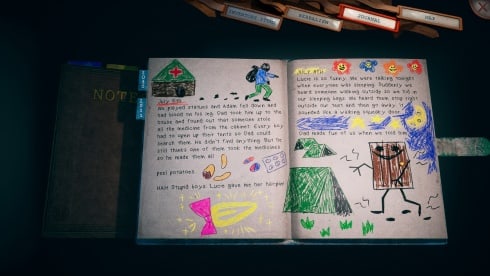 INVENTORY ITEMS
HERBALISM
JOURNAL
MAP
NOTE
July 8th
We played statues and Adam fell down and
had blood on his leg. Dad took him up to the
house and found out that someone stole
all the medicine from the cabinet. Every boy
had to open up their tents so Dad could
search them. He didn't find anything. But he
still thinks one of them took the medicines
so he made them all
peel potatoes.
HAHA Stupid boys. Lucie gave me her hairpin!
Lucie is so funny! We were talking tonight
when everyone was sleeping. Suddenly we
heard someone walking outside so we hid in
our sleeping bags. We heard them stop right
outside our tent and then go away. It
sounded like a walking squeaky door.
Dad made fun of us when we told him.